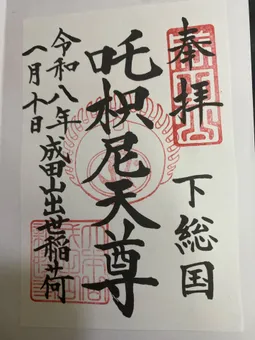 奉拝
下総国
吒枳尼天尊
令和八年
一月十日
成田山出世稲荷